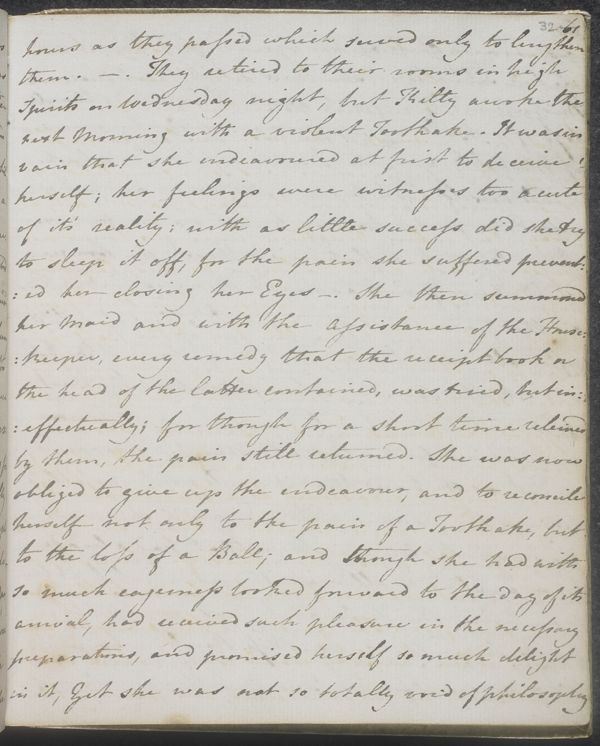 32 61
hours as they passed which served only to lengthen
them. — . They retired to their rooms in high
Spirits on Wednesday night, but Kitty awoke the
next Morning with a violent Toothake. It was in
vain that she endeavoured at first to deceive
herself; her feelings were witnesses too acute
of it's reality; with as little success did she try
to sleep it off, for the pain she suffered prevent:
:ed her closing her Eyes —. She then summoned
her Maid and with the Assistance of the House:
:keeper, every remedy that the receipt book or
the head of the latter contained, was tried, but in:
:effectually; for though for a short time relieved
by them, the pain still returned. She was now
obliged to give up the endeavour, and to reconcile
herself not only to the pain of a Toothake, but
to the loss of a Ball; and though she had with
so much eagerness looked forward to the day of its
arrival, had received such pleasure in the necessary
preparations, and promised herself so much delight
in it, Yet she was not so totally void of philosophy